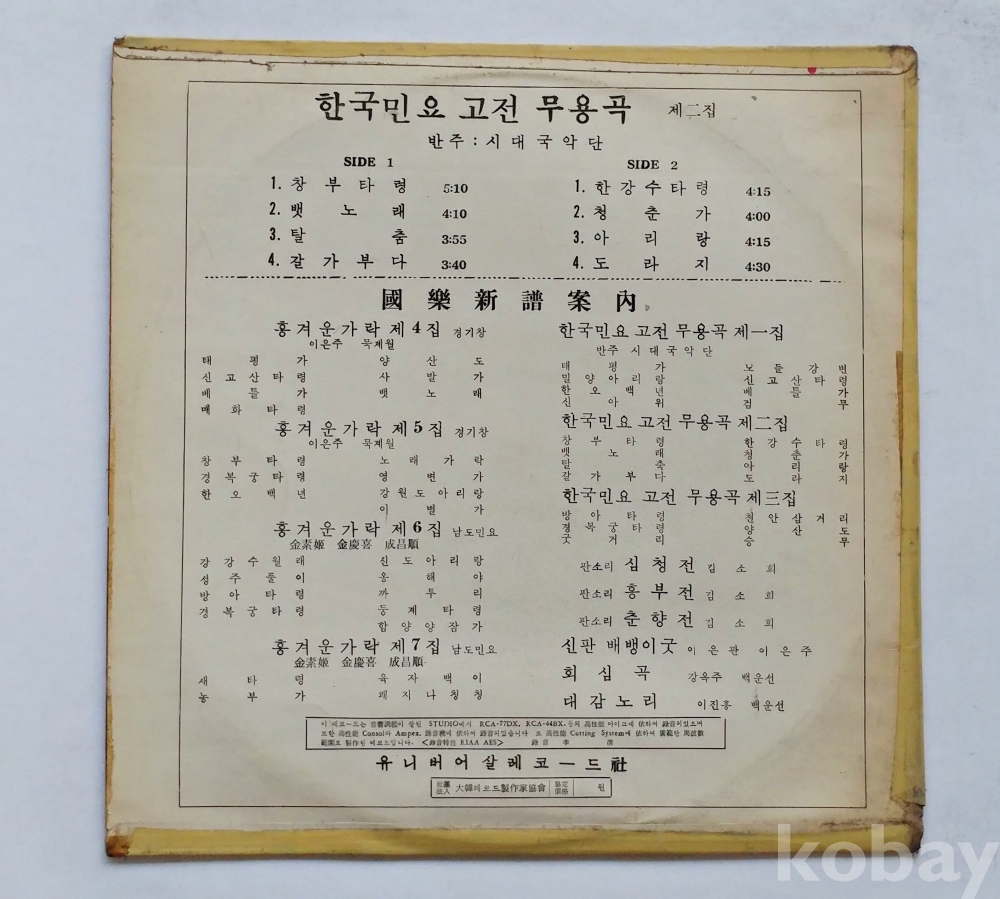 한국민요 고전 무용곡 제二집
반주 : 시대국악단
SIDE 1
1. 창부타령 5:10
2. 뱃노래 4:10
3. 탈춤 3:55
4. 갈가부다 3:40
SIDE 2
1. 한강수타령 4:15
2. 청춘가 4:00
3. 아리랑 4:15
4. 도라지 4:30
國樂新譜案內
흥겨운가락 제4집 경기창
이은주 묵계월
태평가 양산도
신고산타령 사발가
베틀가 뱃노래
매화타령
흥겨운가락 제5집 경기창
이은주 묵계월
창부타령 노래가락
경복궁타령 영변가
한오백년 강원도아리랑
이별가
흥겨운가락 제6집 남도민요
金素姬 金慶喜 成昌順
강강수월래 신도아리랑
성주풀이 옹해야
방아타령 까투리
경복궁타령 둥게타령
합양양잠가
흥겨운가락 제7집 남도민요
金素姬 金慶喜 成昌順
새타령 육자백이
농부가 쾌지나칭칭
한국민요 고전 무용곡 제一집
반주 시대국악단
태평가 노들강변
밀양아리랑 신고산타령
한오백년 베틀가
신아위 검무
한국민요 고전 무용곡 제二집
창부타령 한강수타령
뱃노래 청춘가
탈축 아리랑
갈가부다 도라지
한국민요 고전 무용곡 제三집
방아타령 천안삼거리
경복궁타령 양산도
굿거리 승무
판소리 심청전 김소희
판소리 흥부전 김소희
판소리 춘향전 김소희
신판 배뱅이굿 이은관 이은주
회심곡 강옥주 백운선
대감노리 이진홍 백운선
이 레코드는 音響調節이 잘된 STUDIO에서 RCA-77DX, RCA-44BX, 등의 高性能 마이크에 依하여 錄音되었으며
또한 高性能 Consol과 Ampex, 錄音機에 依하여 錄音되었습니다 또 高性能 Cutting System에 依하여 廣範한 周波數
範圍로 製作된 레코드입니다. <錄音特性 RIAA AES> 錄音 李 淸
유니버어살레코ー드社
社團法人 大韓레코오드製作家協會 協定價格 원
kobay